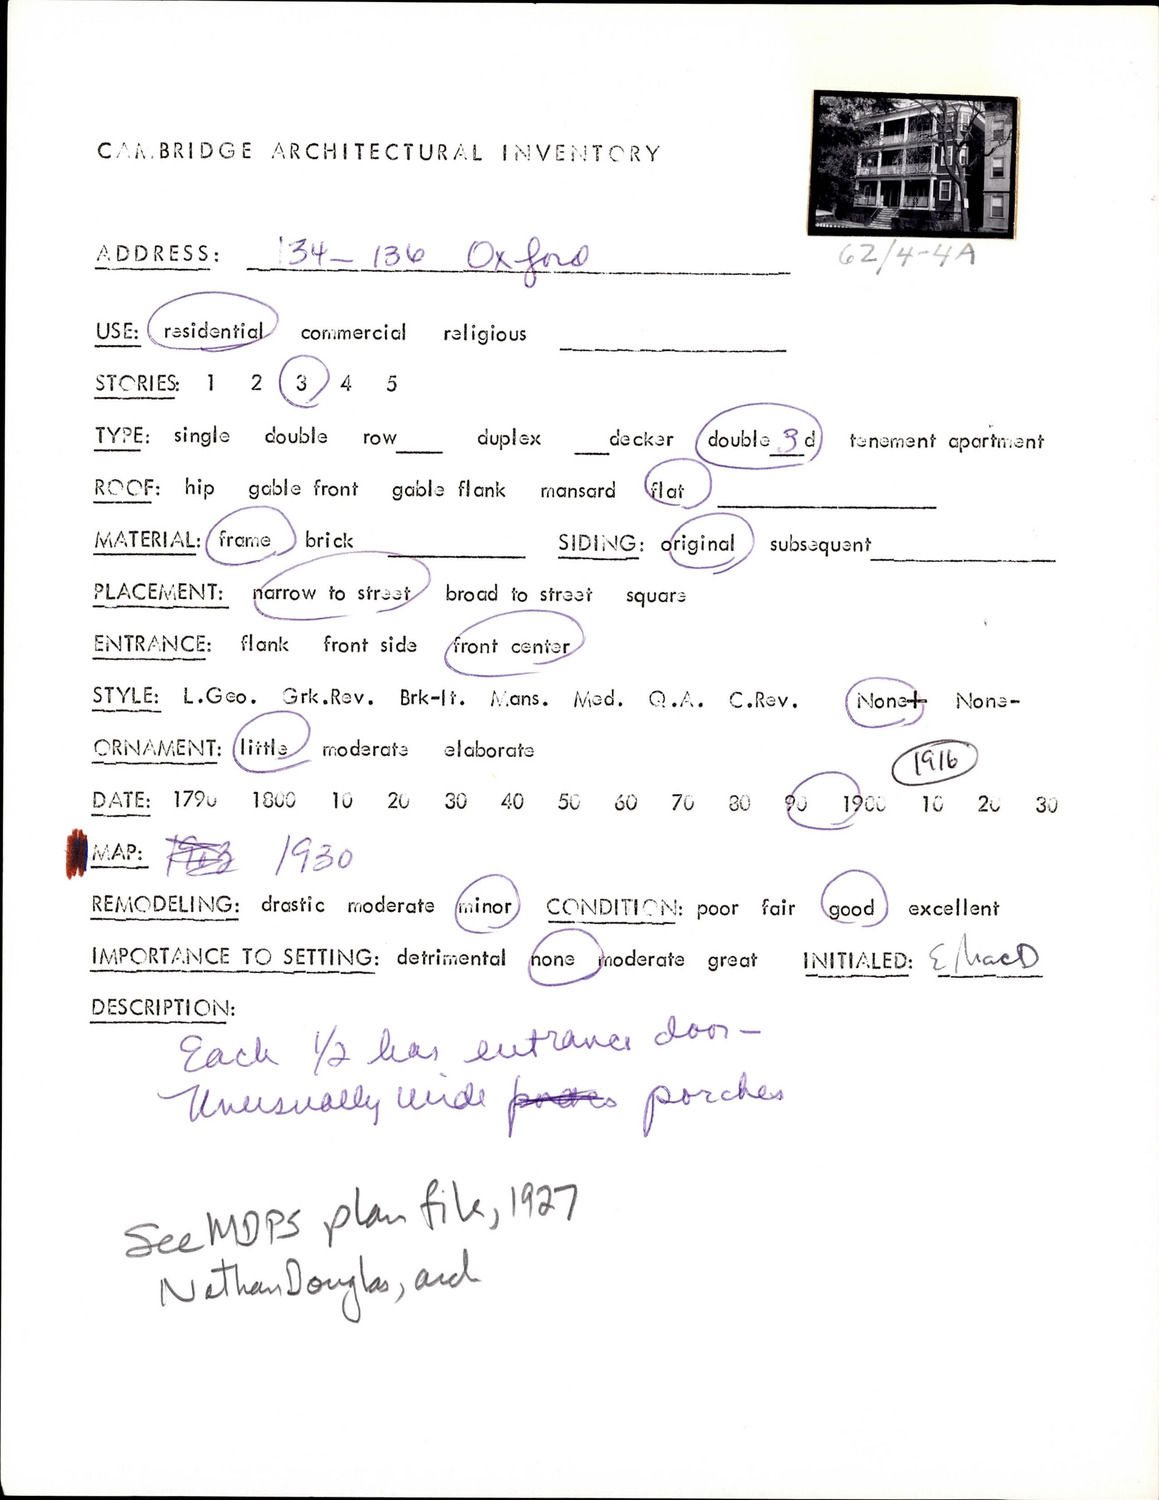 CAMBRIDGE ARCHITECTURAL INVENTORY
62/4-4A
ADDRESS: 134-136 Oxford
USE: residential commercial religious
STORIES: 1 2 3 4 5
TYPE: single double row___ duplex ___decker double 3 d tenement apartment
ROOF: hip gable front gable flank mansard flat
MATERIAL: frame brick ___ SIDING: original subsequent___
PLACEMENT: narrow to street broad to street square
ENTRANCE: flank front side front center
STYLE: L.Geo. Grk.Rev. Brk-It. Mans. Med. Q.A. C.Rev. None+ None-
ORNAMENT: little moderate elaborate
1916
DATE: 1790 1800 10 20 30 40 50 60 70 80 90 1900 10 20 30
MAP: 1903 1930
REMODELING: drastic moderate minor CONDITION: poor fair good excellent
IMPORTANCE TO SETTING: detrimental none moderate great INITIALED: E MacD
DESCRIPTION:
Each 1/2 has entrance door-
Unusually wide porches
See MDPS plan file, 1927
Nathan Douglas, arch